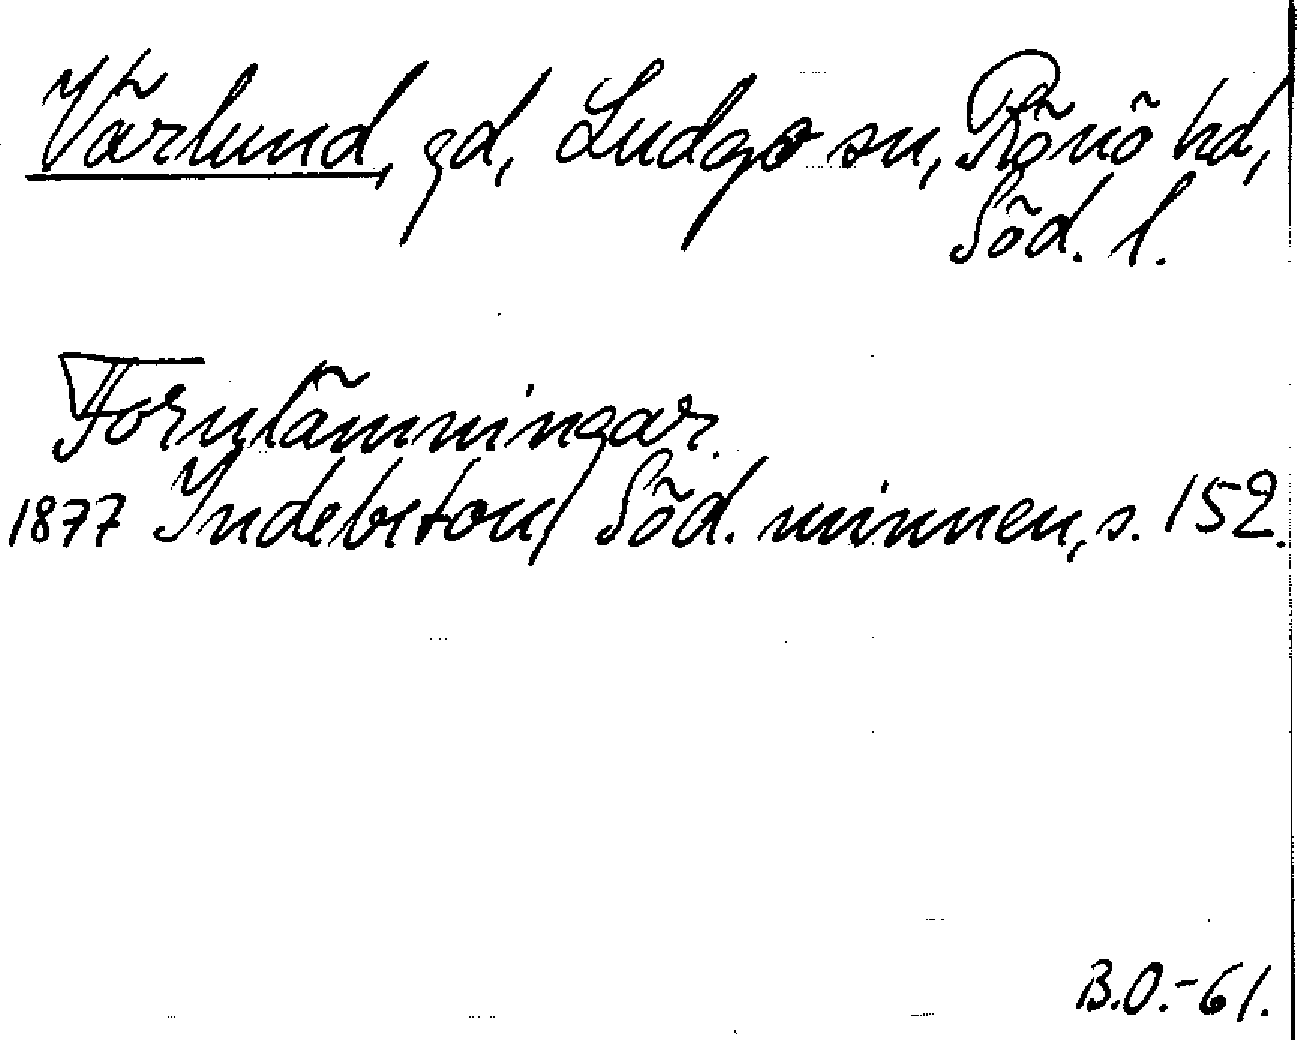 Värlund, gd, Ludgo sn, Rönö hd,
Söd. l.
Fornlämningar.
1877 Indebetou, Söd. minnen, s. 152.
B.O.-61.